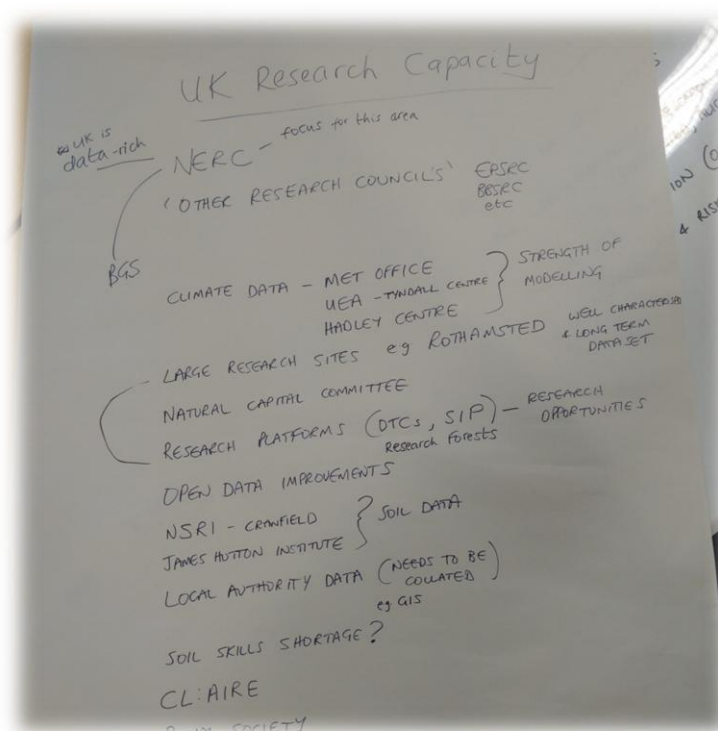 UK Research Capacity
UK is
data-rich
NERC - focus for this area
'OTHER RESEARCH COUNCIL'S' EPSRC
BBSRC
etc
BGS
CLIMATE DATA - MET OFFICE
UEA - TYNDALL CENTRE
HADLEY CENTRE
STRENGTH OF
MODELLING
- LARGE RESEARCH SITES eg ROTHAMSTED
WELL CHARACTERISED
& LONG TERM
DATASET
NATURAL CAPITAL COMMITTEE
RESEARCH PLATFORMS (DTCs, SIP) - RESEARCH
OPPORTUNITIES
Research Forests
OPEN DATA IMPROVEMENTS
NSRI - CRANFIELD
JAMES HUTTON INSTITUTE
SOIL DATA
LOCAL AUTHORITY DATA (NEEDS TO BE
COLLATED)
eg GIS
SOIL SKILLS SHORTAGE?
CL:AIRE
SOCIETY
ION (O
& RIS